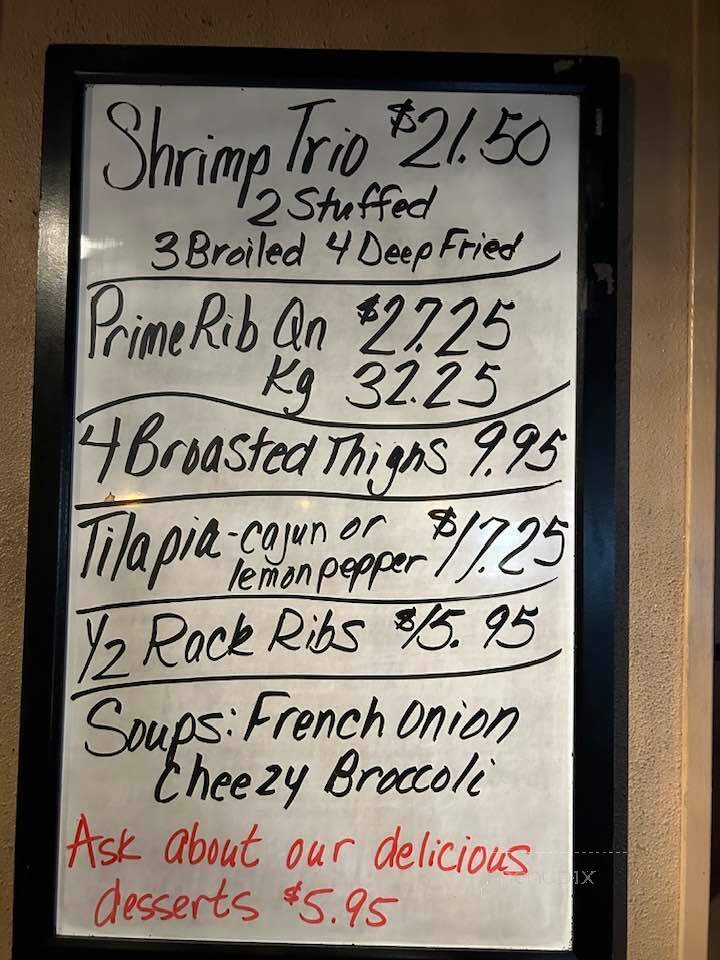 Shrimp Trio $21.50
2 Stuffed
3 Broiled 4 Deep Fried
Prime Rib Qn $27.25
Kg 32.25
4 Broasted Thighs 9.95
Tilapia - cajun or $17.25
lemon pepper
1/2 Rack Ribs $15.95
Soups: French Onion
Cheezy Broccoli
Ask about our delicious
desserts $5.95